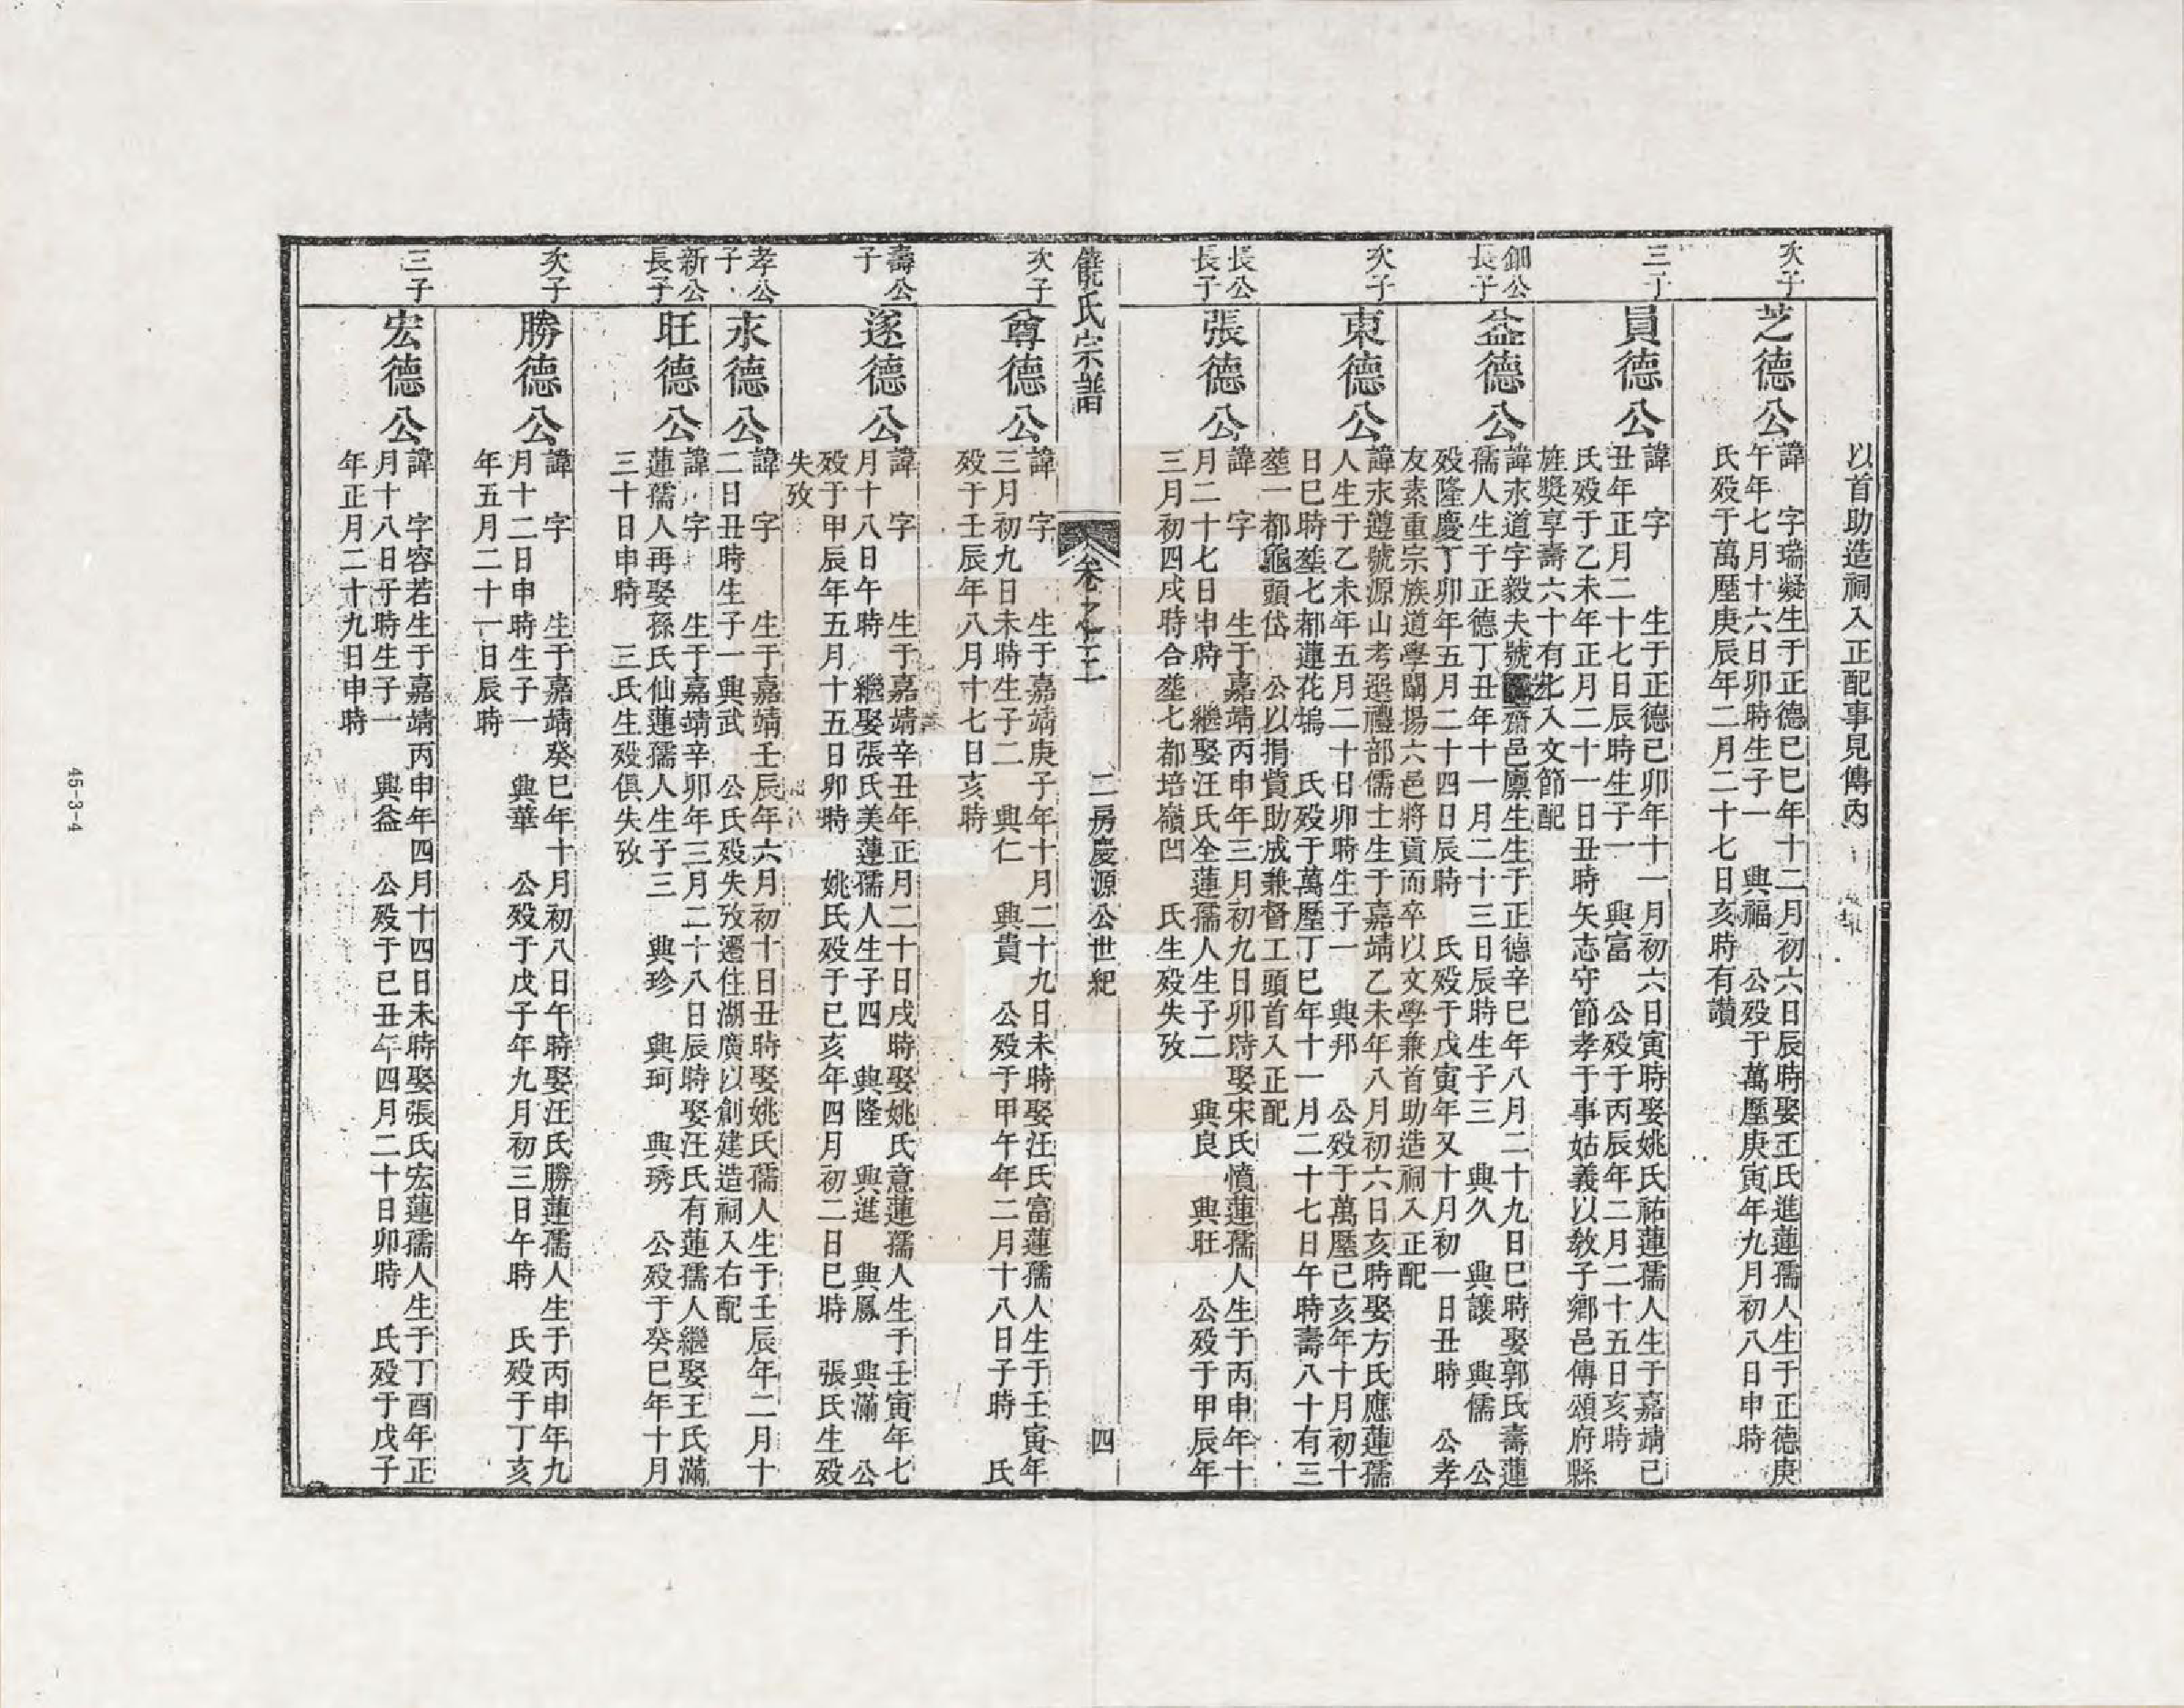 以首助造祠入正配事見傳內
次子
芝德公
諱　字瑞凝生于正德己巳年十二月初六日辰時娶王氏進蓮孺人生于正德庚
午年七月十六日卯時生子一　興福　公歿于萬歷庚寅年九月初八日申時
氏歿于萬歷庚辰年二月二十七日亥時有讚
三子
員德公
諱　字　生于正德己卯年十一月初六日寅時娶姚氏祐蓮孺人生于嘉靖己
丑年正月二十七日辰時生子一　興富　公歿于丙辰年二月二十五日亥時
氏歿于乙未年正月二十一日丑時矢志守節孝于事姑義以敎子鄉邑傳頌府縣
旌獎享壽六十有七入文節配
鈿公
長子
益德公
諱永道字毅夫號齋邑廪生生于正德辛巳年八月二十九日巳時娶郭氏壽蓮
孺人生于正德丁丑年十一月二十三日辰時生子三　興久　興讓　興儒　公
歿隆慶丁卯年五月二十四日辰時　氏歿于戊寅年又十月初一日丑時　公孝
友素重宗族道學闡揚六邑將貢而卒以文學兼首助造祠入正配
次子
東德公
諱永遵號源山考選禮部儒士生于嘉靖乙未年八月初六日亥時娶方氏應蓮孺
人生于乙未年五月二十日卯時生子一　興邦　公歿于萬歷己亥年十月初十
日巳時塟七都蓮花塢　氏歿于萬歷丁巳年十一月二十七日午時壽八十有三
塟一都龜頭岱　公以捐貲助成兼督工頭首入正配
長公
長子
張德公
諱　字　生于嘉靖丙申年三月初九日卯時娶宋氏憤蓮孺人生于丙申年十
月二十七日申時　繼娶汪氏全蓮孺人生子二　興良　興旺　公歿于甲辰年
三月初四戌時合塟七都培嶺凹　氏生歿失攷
饒氏宗譜
卷之二　二房慶源公世紀　四
次子
尊德公
諱　字　生于嘉靖庚子年十月二十九日未時娶汪氏富蓮孺人生于壬寅年
三月初九日未時生子二　興仁　興貴　公歿于甲午年二月十八日子時　氏
歿于壬辰年八月十七日亥時
壽公
子
遂德公
諱　字　生于嘉靖辛丑年正月二十日戌時娶姚氏意蓮孺人生于壬寅年七
月十八日午時　繼娶張氏美蓮孺人生子四　興隆　興進　興鳳　興滿　公
歿于甲辰年五月十五日卯時　姚氏歿于己亥年四月初二日巳時　張氏生歿
失攷
孝公
子
永德公
諱　字　生于嘉靖壬辰年六月初十日丑時娶姚氏孺人生于壬辰年二月十
二日丑時生子一　興武　公氏歿失攷遷住湖廣以創建造祠入右配
新公
長子
旺德公
諱　字　生于嘉靖辛卯年三月二十八日辰時娶汪氏有蓮孺人繼娶王氏滿
蓮孺人再娶孫氏仙蓮孺人生子三　興珍　興珂　興琇　公歿于癸巳年十月
三十日申時　三氏生歿俱失攷
次子
勝德公
諱　字　生于嘉靖癸巳年十月初八日午時娶汪氏勝蓮孺人生于丙申年九
月十二日申時生子一　興華　公歿于戊子年九月初三日午時　氏歿于丁亥
年五月二十一日辰時
三子
宏德公
諱　字容若生于嘉靖丙申年四月十四日未時娶張氏宏蓮孺人生于丁酉年正
月十八日子時生子一　興益　公歿于己丑年四月二十日卯時　氏歿于戊子
年正月二十九日申時
45-3-4